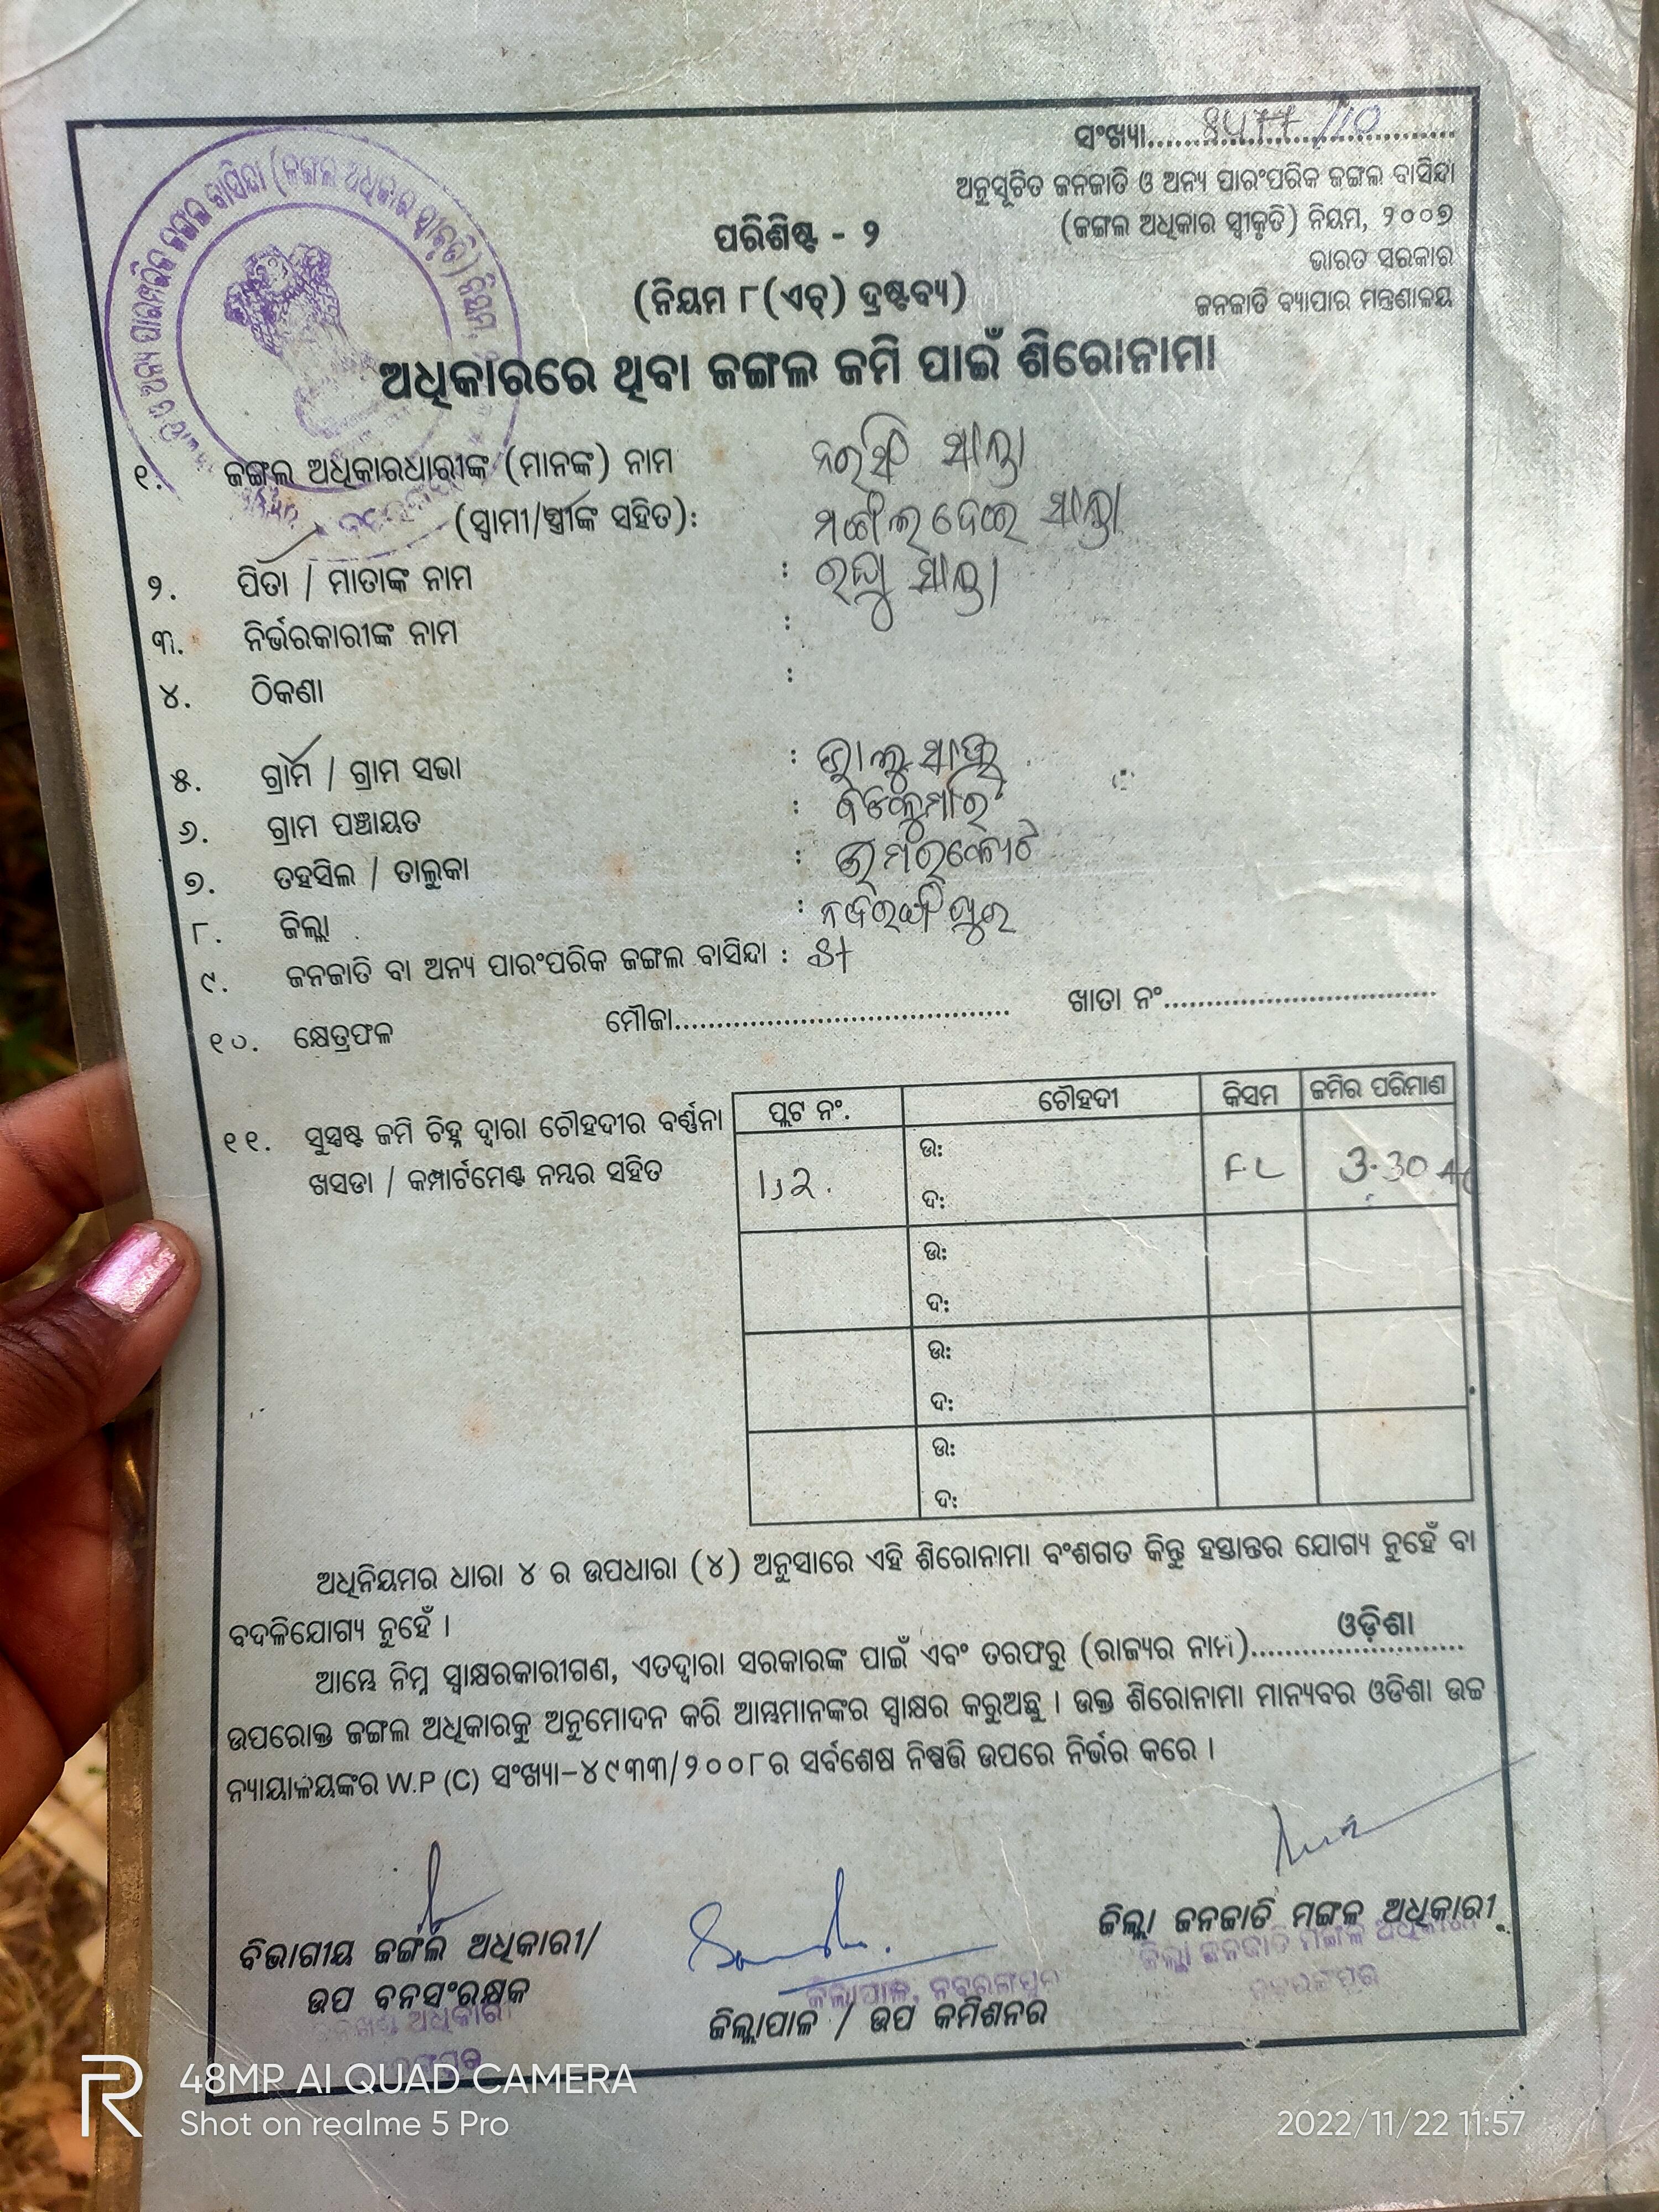 ସଂଖ୍ୟା.....................................
ଅନୁସୂଚିତ ଜନଜାତି ଓ ଅନ୍ୟ ପାରଂପରିକ ଜଙ୍ଗଲ ବାସିନ୍ଦା
(ଜଙ୍ଗଲ ଅଧିକାର ସ୍ୱୀକୃତି) ନିୟମ, ୨୦୦୭
ଭାରତ ସରକାର
ଜନଜାତି ବ୍ୟାପାର ମନ୍ତ୍ରଣାଳୟ
ପରିଶିଷ୍ଟ - ୨
(ନିୟମ ୮(ଏଚ୍) ଦ୍ରଷ୍ଟବ୍ୟ)
ଅଧିକାରରେ ଥିବା ଜଙ୍ଗଲ ଜମି ପାଇଁ ଶିରୋନାମା
ଅନ୍ୟ ପାରମ୍ପରିକ ଜଙ୍ଗଲ ବାସିନ୍ଦା (ଜଙ୍ଗଲ ଅଧିକାର ସ୍ୱୀକୃତି) ନିୟମ
୧. ଜଙ୍ଗଲ ଅଧିକାରଧାରୀଙ୍କ (ମାନଙ୍କ) ନାମ
(ସ୍ୱାମୀ/ସ୍ତ୍ରୀଙ୍କ ସହିତ):
୨. ପିତା / ମାତାଙ୍କ ନାମ : ରଘୁ ସାନ୍ତା
୩. ନିର୍ଭରକାରୀଙ୍କ ନାମ :
୪. ଠିକଣା :
୫. ଗ୍ରାମ / ଗ୍ରାମ ସଭା :
୬. ଗ୍ରାମ ପଞ୍ଚାୟତ :
୭. ତହସିଲ / ତାଲୁକା : ଉମରକୋଟ
୮. ଜିଲ୍ଲା : ନବରଙ୍ଗପୁର
୯. ଜନଜାତି ବା ଅନ୍ୟ ପାରଂପରିକ ଜଙ୍ଗଲ ବାସିନ୍ଦା : St
୧୦. କ୍ଷେତ୍ରଫଳ ମୌଜା........................................ ଖାତା ନଂ.................................
୧୧. ସୁସ୍ପଷ୍ଟ ଜମି ଚିହ୍ନ ଦ୍ୱାରା ଚୌହଦୀର ବର୍ଣ୍ଣନା
ଖସଡା / କମ୍ପାର୍ଟମେଣ୍ଟ ନମ୍ବର ସହିତ
ପ୍ଲଟ ନଂ. ଚୌହଦୀ କିସମ ଜମିର ପରିମାଣ
ଉ: FL 3.30 Ac
ଦ:
ଉ:
ଦ:
ଉ:
ଦ:
ଉ:
ଦ:
ଅଧିନିୟମର ଧାରା ୪ ର ଉପଧାରା (୪) ଅନୁସାରେ ଏହି ଶିରୋନାମା ବଂଶଗତ କିନ୍ତୁ ହସ୍ତାନ୍ତର ଯୋଗ୍ୟ ନୁହେଁ ବା
ବଦଳିଯୋଗ୍ୟ ନୁହେଁ ।
ଆମ୍ଭେ ନିମ୍ନ ସ୍ୱାକ୍ଷରକାରୀଗଣ, ଏତଦ୍ୱାରା ସରକାରଙ୍କ ପାଇଁ ଏବଂ ତରଫରୁ (ରାଜ୍ୟର ନାମ).......ଓଡ଼ିଶା.......
ଉପରୋକ୍ତ ଜଙ୍ଗଲ ଅଧିକାରକୁ ଅନୁମୋଦନ କରି ଆମ୍ଭମାନଙ୍କର ସ୍ୱାକ୍ଷର କରୁଅଛୁ । ଉକ୍ତ ଶିରୋନାମା ମାନ୍ୟବର ଓଡିଶା ଉଚ୍ଚ
ନ୍ୟାୟାଳୟଙ୍କର W.P (C) ସଂଖ୍ୟା–୪୯୩୩/୨୦୦୮ର ସର୍ବଶେଷ ନିଷ୍ପତ୍ତି ଉପରେ ନିର୍ଭର କରେ ।
ବିଭାଗୀୟ ଜଙ୍ଗଲ ଅଧିକାରୀ/
ଉପ ବନସଂରକ୍ଷକ
ଜିଲ୍ଲାପାଳ, ନବରଙ୍ଗପୁର
ଜିଲ୍ଲାପାଳ / ଉପ କମିଶନର
ଜିଲ୍ଲା ଜନଜାତି ମଙ୍ଗଳ ଅଧିକାରୀ
ଜିଲ୍ଲା ଜନଜାତି ମଙ୍ଗଳ ଅଧିକାରୀ
ନବରଙ୍ଗପୁର
48MP AI QUAD CAMERA
Shot on realme 5 Pro
2022/11/22 11:57